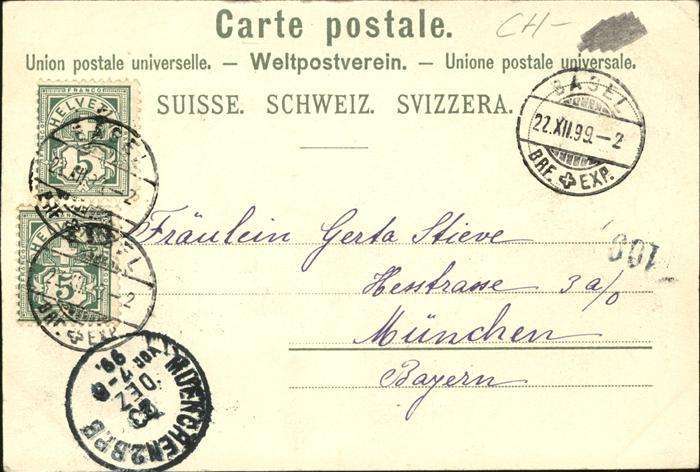 Carte postale.
CH-
Union postale universelle. — Weltpostverein. — Unione postale universale.
SUISSE. SCHWEIZ. SVIZZERA.
BASEL
22.XII.99.-2
BRF. EXP.
FRANCO
HELVETIA
5
BASEL
HELVETIA
5
BASEL
-2
BRF. EXP.
Fräulein Gerta Stieve
Hesstrasse 3 a/0
München
Bayern
100
MUENCHEN 2.B.P.B
23
DEZ
VOR
99.